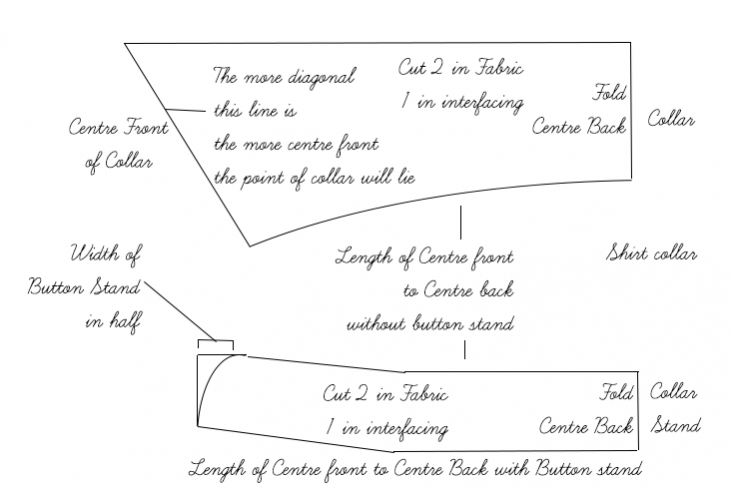 The more diagonal
this line is
the more centre front
the point of collar will lie
Cut 2 in Fabric
1 in interfacing
Fold
Centre Back
Collar
Centre Front
of Collar
Width of
Button Stand
in half
Length of Centre front
to Centre back
without button stand
Shirt collar
Cut 2 in Fabric
1 in interfacing
Fold
Centre Back
Collar
Stand
Length of Centre front to Centre Back with Button stand